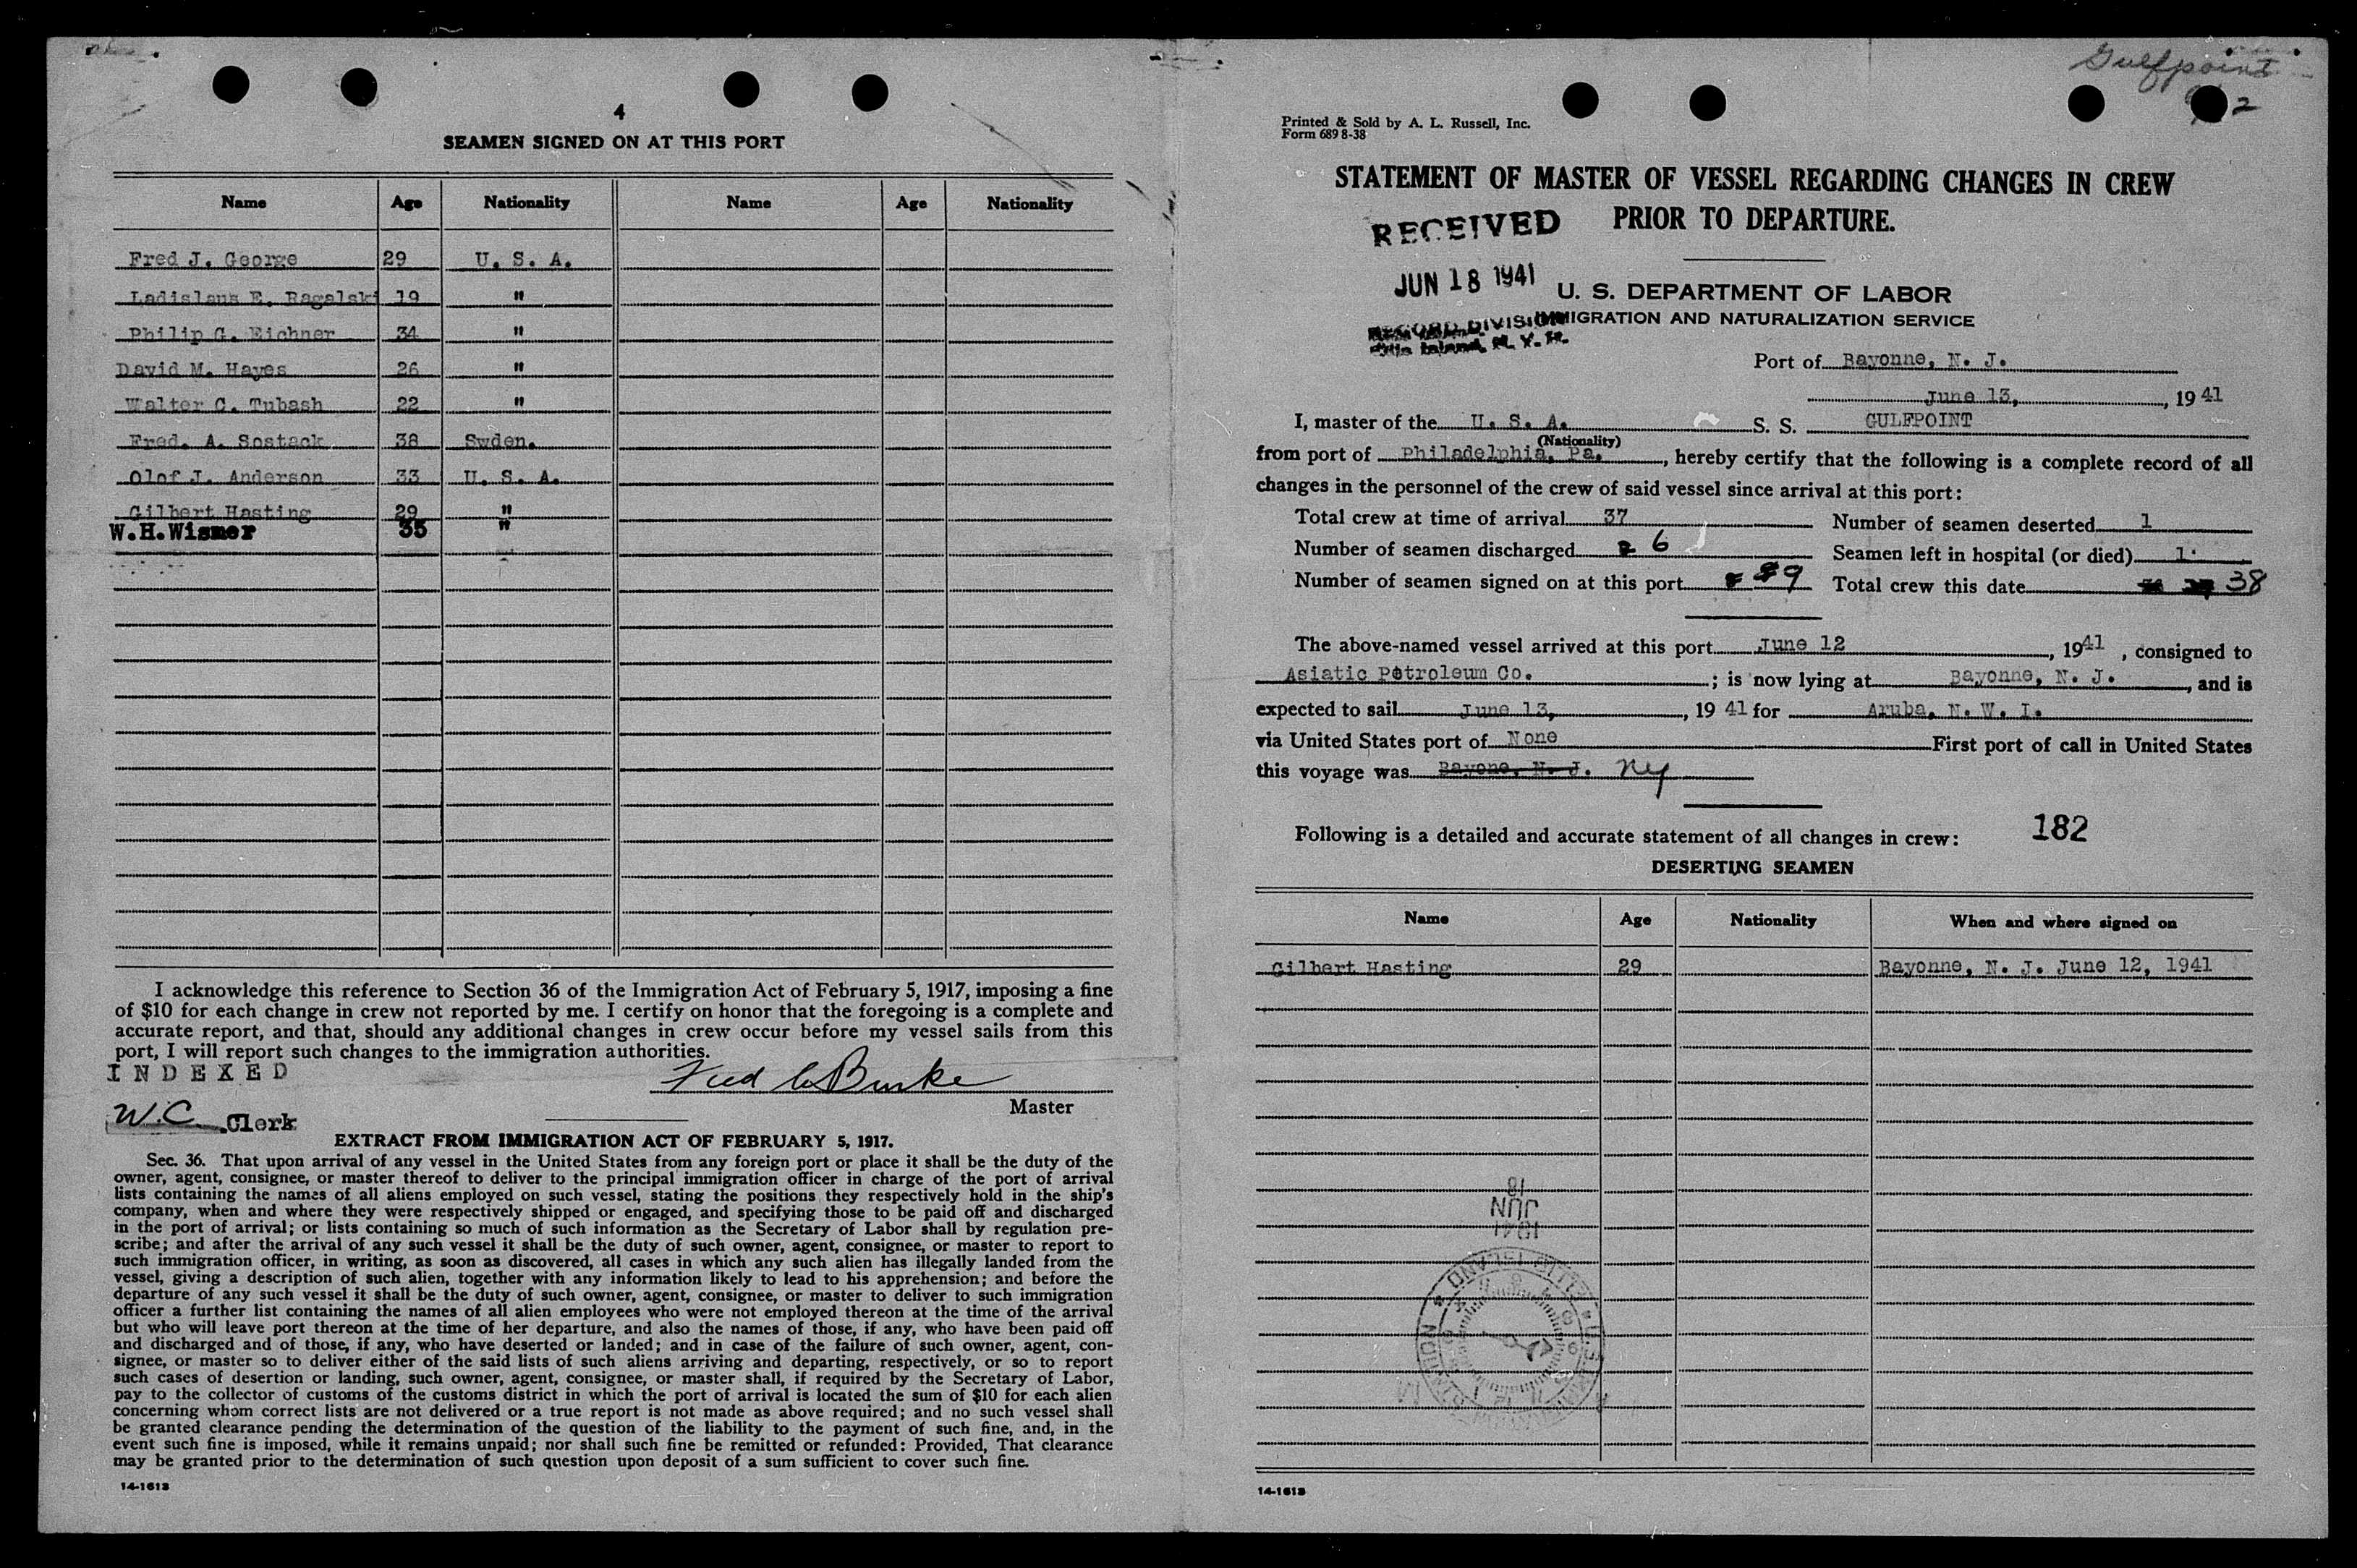 4
SEAMEN SIGNED ON AT THIS PORT
Name Age Nationality Name Age Nationality
Fred J. George 29 U. S. A.
Ladislaus E. Ragalski 19 "
Philip G. Eichner 34 "
David M. Hayes 26 "
Walter C. Tubash 22 "
Fred. A. Sostack 38 Swden.
Olof J. Anderson 33 U. S. A.
Gilbert Hasting 29 "
W.H.Wismer 35 "
I acknowledge this reference to Section 36 of the Immigration Act of February 5, 1917, imposing a fine
of $10 for each change in crew not reported by me. I certify on honor that the foregoing is a complete and
accurate report, and that, should any additional changes in crew occur before my vessel sails from this
port, I will report such changes to the immigration authorities.
INDEXED
Fred C Burke
Master
W.C. Clerk
EXTRACT FROM IMMIGRATION ACT OF FEBRUARY 5, 1917.
Sec. 36. That upon arrival of any vessel in the United States from any foreign port or place it shall be the duty of the
owner, agent, consignee, or master thereof to deliver to the principal immigration officer in charge of the port of arrival
lists containing the names of all aliens employed on such vessel, stating the positions they respectively hold in the ship's
company, when and where they were respectively shipped or engaged, and specifying those to be paid off and discharged
in the port of arrival; or lists containing so much of such information as the Secretary of Labor shall by regulation pre-
scribe; and after the arrival of any such vessel it shall be the duty of such owner, agent, consignee, or master to report to
such immigration officer, in writing, as soon as discovered, all cases in which any such alien has illegally landed from the
vessel, giving a description of such alien, together with any information likely to lead to his apprehension; and before the
departure of any such vessel it shall be the duty of such owner, agent, consignee, or master to deliver to such immigration
officer a further list containing the names of all alien employees who were not employed thereon at the time of the arrival
but who will leave port thereon at the time of her departure, and also the names of those, if any, who have been paid off
and discharged and of those, if any, who have deserted or landed; and in case of the failure of such owner, agent, con-
signee, or master so to deliver either of the said lists of such aliens arriving and departing, respectively, or so to report
such cases of desertion or landing, such owner, agent, consignee, or master shall, if required by the Secretary of Labor,
pay to the collector of customs of the customs district in which the port of arrival is located the sum of $10 for each alien
concerning whom correct lists are not delivered or a true report is not made as above required; and no such vessel shall
be granted clearance pending the determination of the question of the liability to the payment of such fine, and, in the
event such fine is imposed, while it remains unpaid; nor shall such fine be remitted or refunded: Provided, That clearance
may be granted prior to the determination of such question upon deposit of a sum sufficient to cover such fine.
14-1613
Gulfpoint
2
Printed & Sold by A. L. Russell, Inc.
Form 689 8-38
STATEMENT OF MASTER OF VESSEL REGARDING CHANGES IN CREW
PRIOR TO DEPARTURE.
RECEIVED
JUN 18 1941
RECORD DIVISION
Ellis Island, N. Y. H.
U. S. DEPARTMENT OF LABOR
IMMIGRATION AND NATURALIZATION SERVICE
Port of Bayonne, N. J.
June 13, , 19 41
I, master of the U. S. A. S. S. GULFPOINT
(Nationality)
from port of Philadelphia, Pa. , hereby certify that the following is a complete record of all
changes in the personnel of the crew of said vessel since arrival at this port:
Total crew at time of arrival 37 Number of seamen deserted 1
Number of seamen discharged 6 Seamen left in hospital (or died) 1
Number of seamen signed on at this port 9 Total crew this date 38
The above-named vessel arrived at this port June 12 , 19 41 , consigned to
Asiatic Petroleum Co. ; is now lying at Bayonne, N. J. , and is
expected to sail June 13, , 19 41 for Aruba, N. W. I.
via United States port of None First port of call in United States
this voyage was Bayone, N. J. NY
Following is a detailed and accurate statement of all changes in crew: 182
DESERTING SEAMEN
Name Age Nationality When and where signed on
Gilbert Hasting 29 Bayonne, N. J. June 12, 1941
18
JUN
1941
ELLIS ISLAND
14-1613